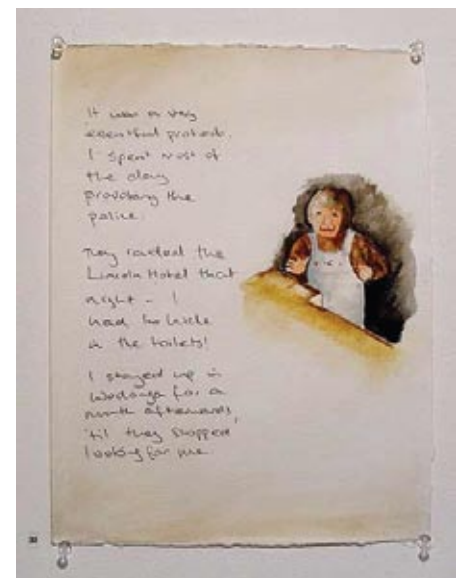 It was a very
eventful protest.
I spent most of
the day
provoking the
police.
They raided the
Lincoln Hotel that
night - I
had to hide
in the toilets!
I stayed up in
Wodonga for a
month afterwards,
'til they stopped
looking for me.